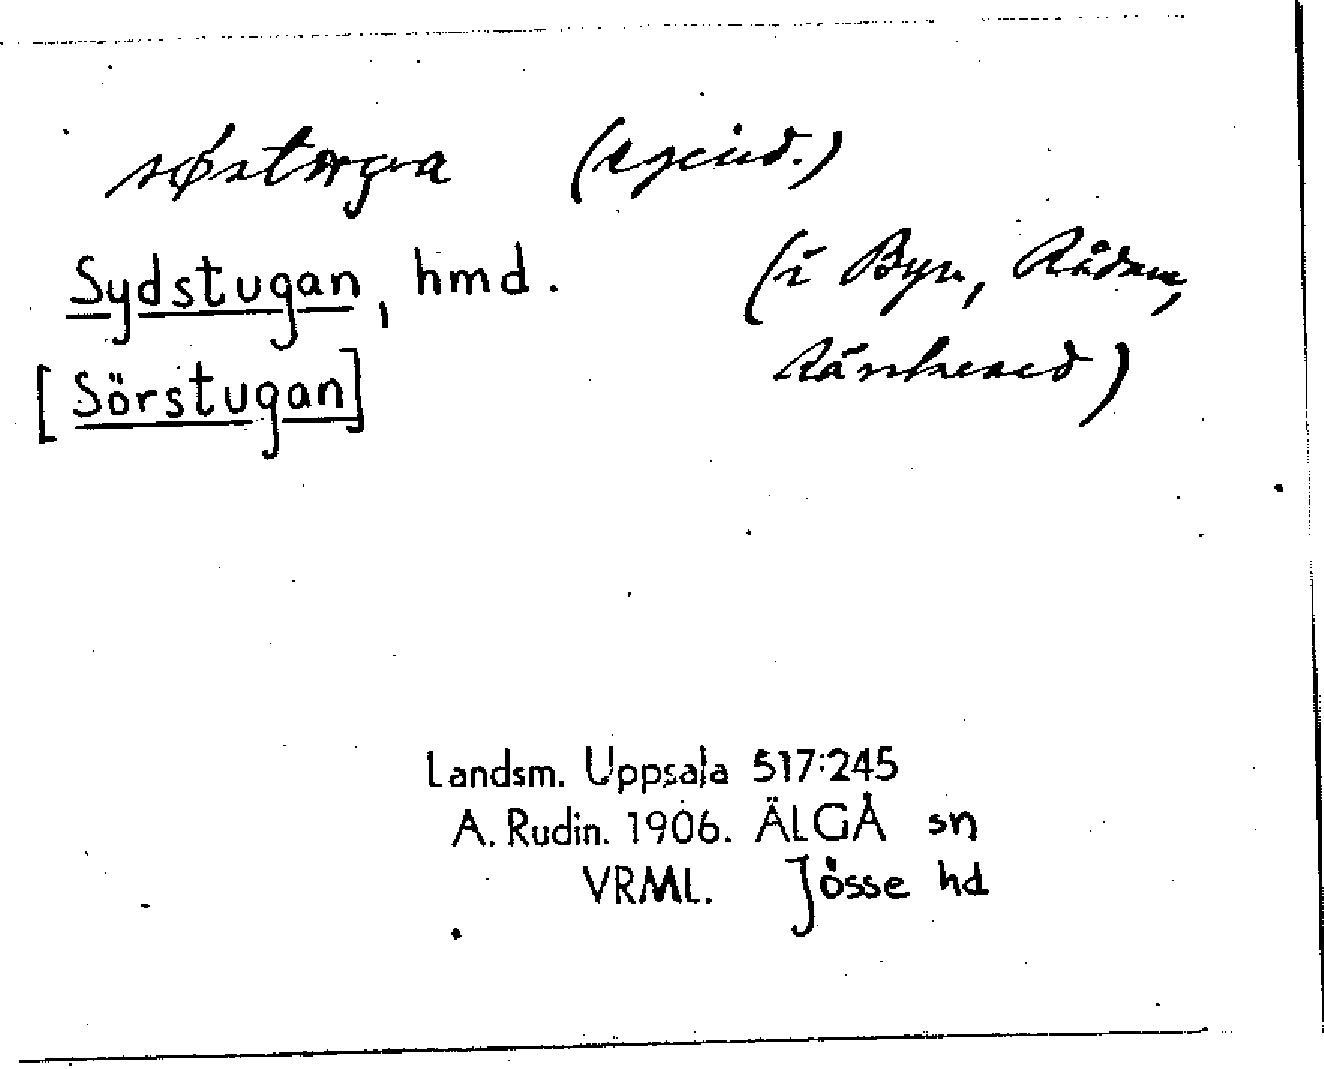 (egend.)
Sydstugan, hmd. (i Byn, Rådane,
[Sörstugan] Ränkesed)
Landsm. Uppsala 517:245
A. Rudin. 1906. ÄLGÅ sn
VRML. Jösse hd